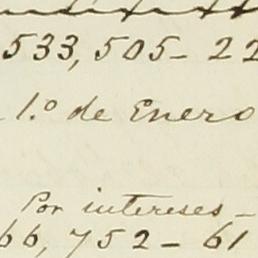 533,505-22
1.º de Enero
Por intereses-
66,752-61